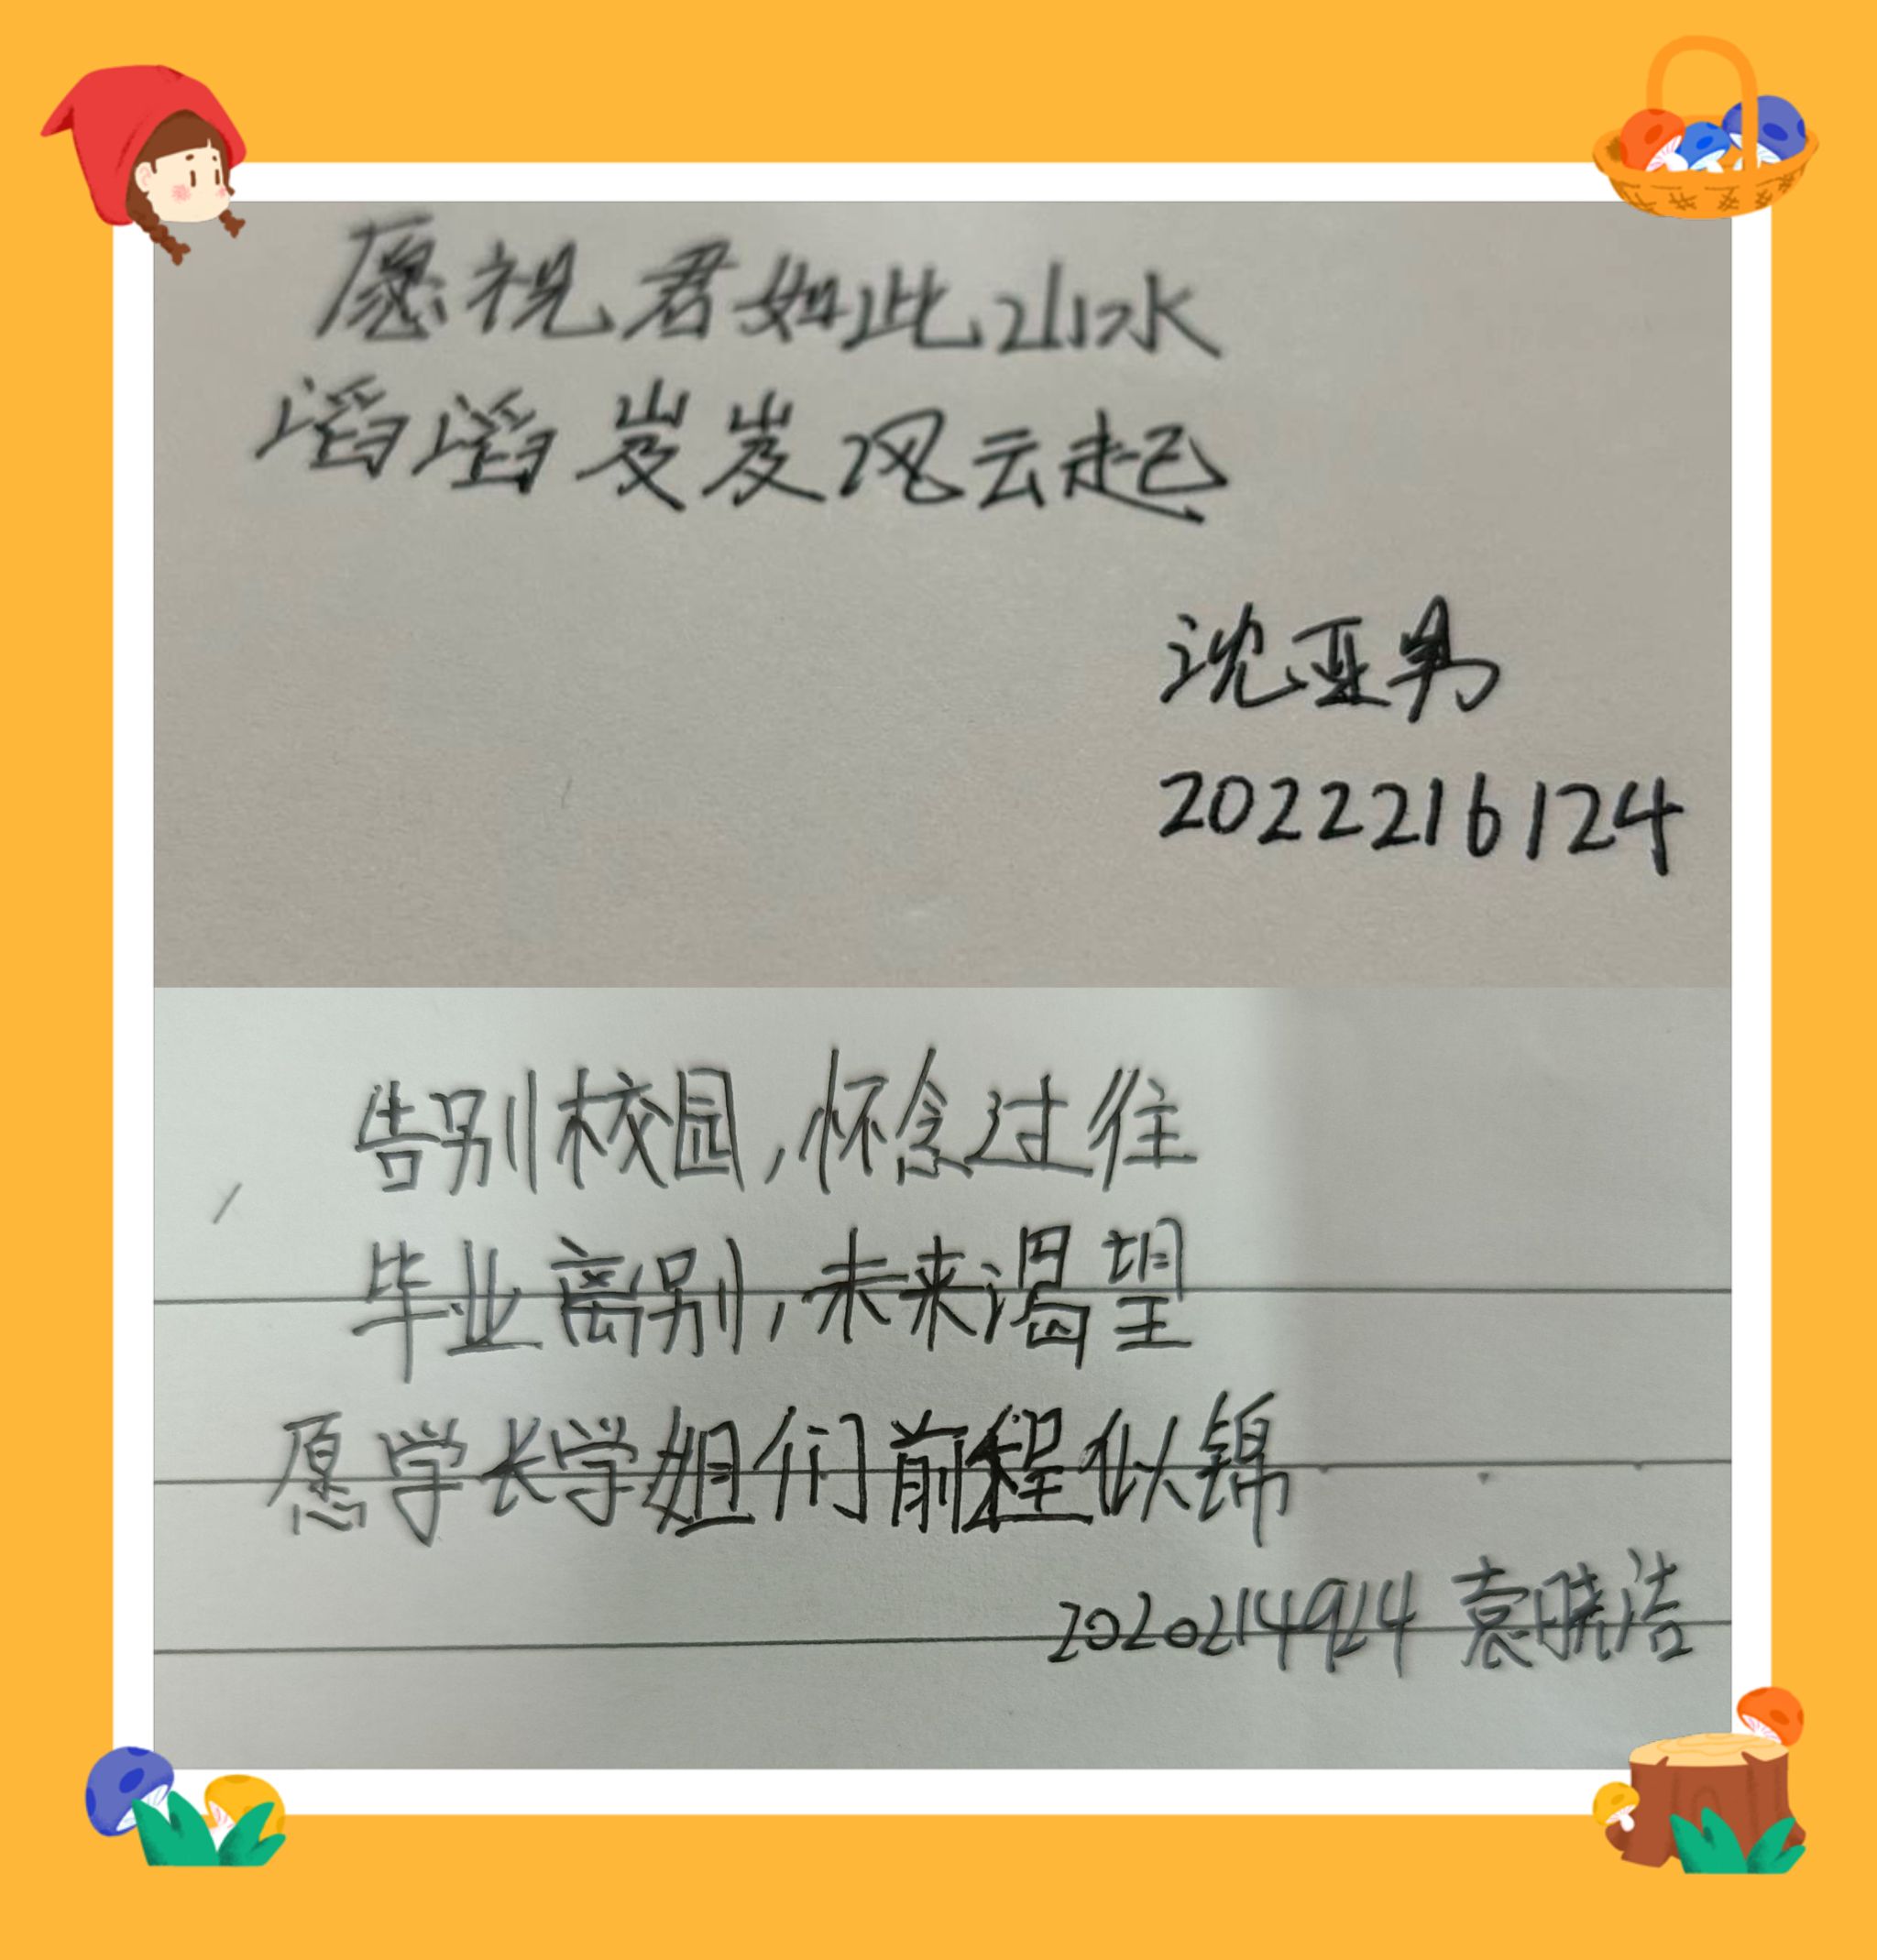 愿祝君如此山水
滔滔岌岌风云起
沈亚男
2022216124
告别校园,怀念过往
毕业离别,未来渴望
愿学长学姐们前程似锦
2020214924 袁晓洁